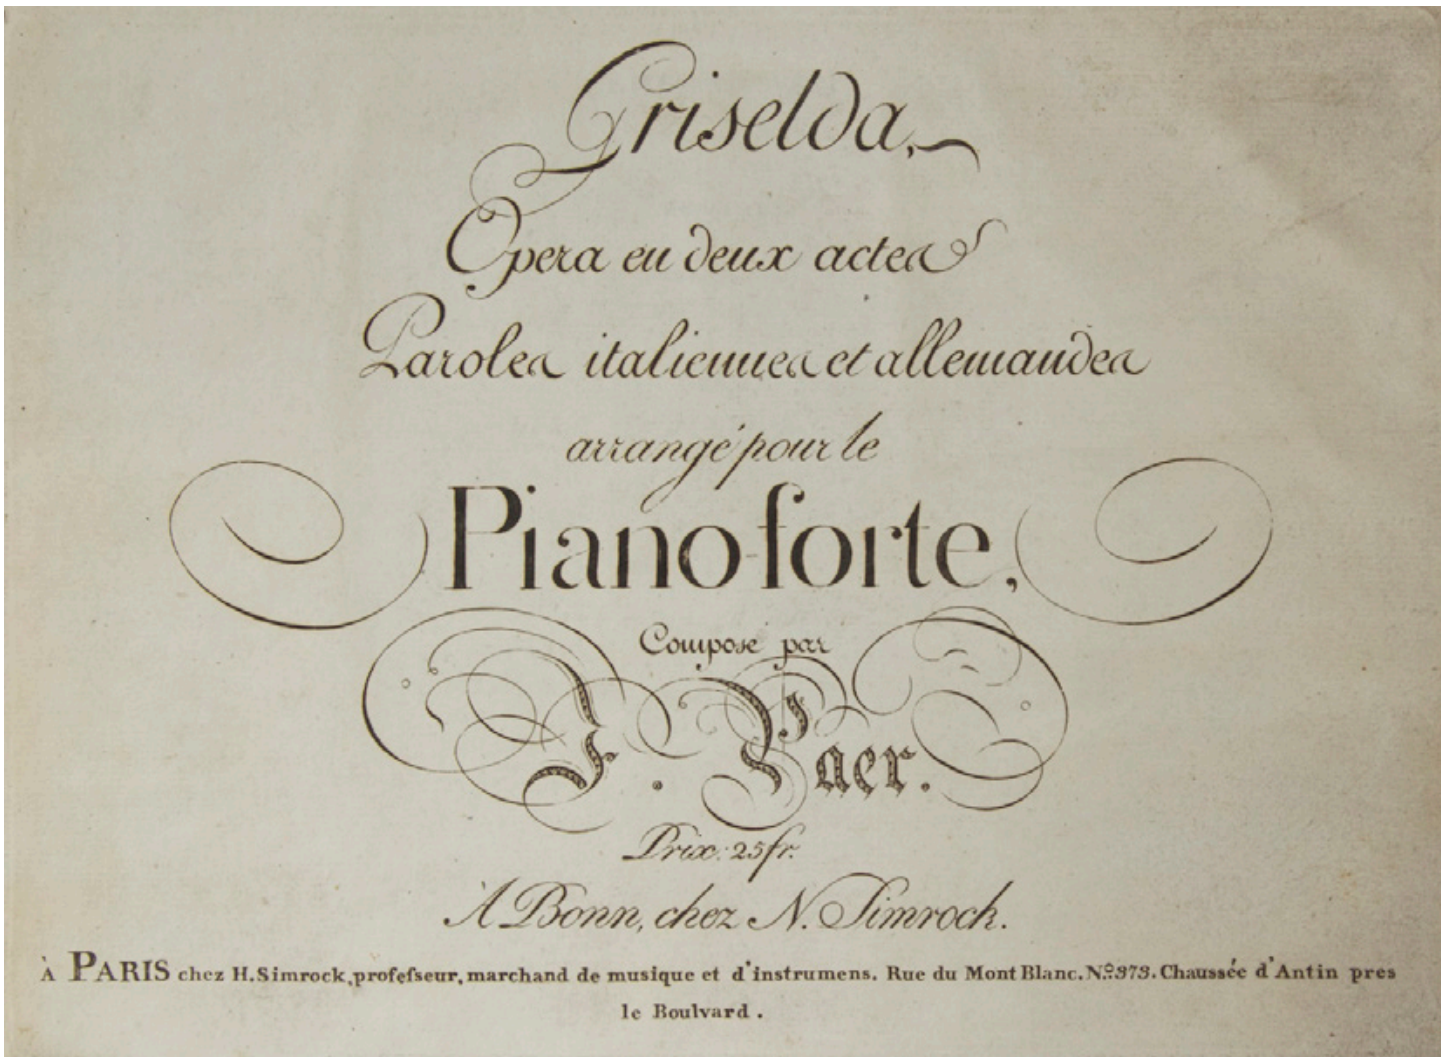 Griselda,
Opera en deux actes
Paroles italiennes et allemandes
arrangé pour le
Piano-forte,
Composé par
F. Paer.
Prix: 25 fr.
A Bonn, chez N. Simrock.
À PARIS chez H. Simrock, profeſseur, marchand de musique et d'instrumens. Rue du Mont Blanc. Nº 373. Chaussée d'Antin pres
le Boulvard.